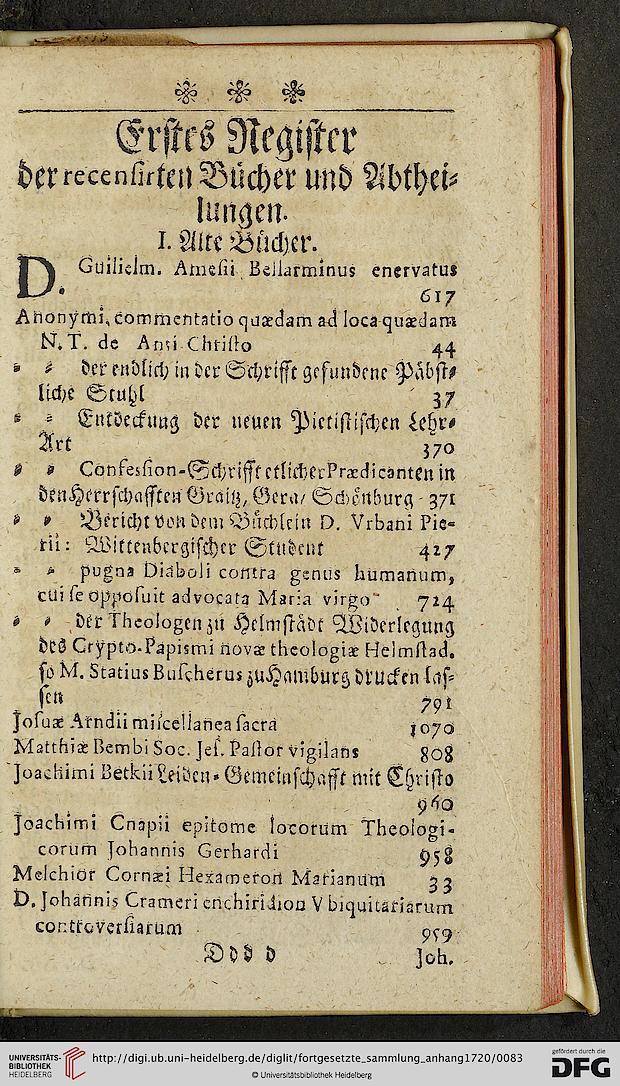 Erstes Register
der recensirten Bücher und Abthei⸗
lungen.
I. Alte Bücher.
D. Guilielm. Amesii Bellarminus enervatus
617
Anonymi, commentatio quædam ad loca quædam
N. T. de Anti-Christo 44
⸗ ⸗ der endlich in der Schrifft gefundene Päbst⸗
liche Stuhl 37
⸗ ⸗ Entdeckung der neuen Pietistischen Lehr⸗
Art 370
⸗ ⸗ Confession-Schrifft etlicher Prædicanten in
den Herrschafften Graitz, Gera/ Schönburg - 371
⸗ ⸗ Bericht von dem Büchlein D. Vrbani Pie-
rii: Wittenbergischer Student 427
⸗ ⸗ pugna Diaboli contra genus humanum,
cui se opposuit advocata Maria virgo 724
⸗ ⸗ der Theologen zu Helmstädt Widerlegung
des Crypto-Papismi novæ theologiæ Helmstad.
so M. Statius Buscherus zu Hamburg drucken las⸗
sen 791
Josuæ Arndii miscellanea sacra 1070
Matthiæ Bembi Soc. Jes. Pastor vigilans 808
Joachimi Betkii Leiden⸗Gemeinschafft mit Christo
960
Joachimi Cnapii epitome locorum Theologi-
corum Johannis Gerhardi 958
Melchior Cornæi Hexameron Marianum 33
D. Johannis Crameri enchiridion Vbiquitariarum
controversiarum 959
Dddd Joh.
UNIVERSITÄTS-
BIBLIOTHEK
HEIDELBERG
http://digi.ub.uni-heidelberg.de/diglit/fortgesetzte_sammlung_anhang1720/0083
© Universitätsbibliothek Heidelberg
gefördert durch die
DFG